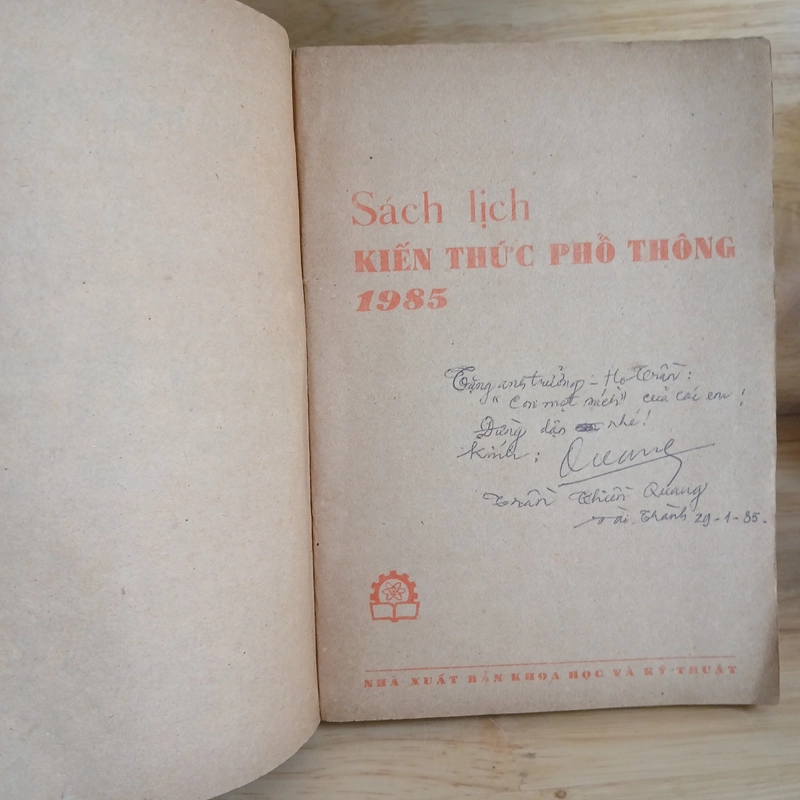 Sách lịch
KIẾN THỨC PHỔ THÔNG
1985
Tặng anh trưởng - Họ Trần:
"Con mọt sách" của các em!
Đừng dận nhé!
Kính: Quang
Trần Thiện Quang
Thành 29-1-85.
NHÀ XUẤT BẢN KHOA HỌC VÀ KỸ THUẬT